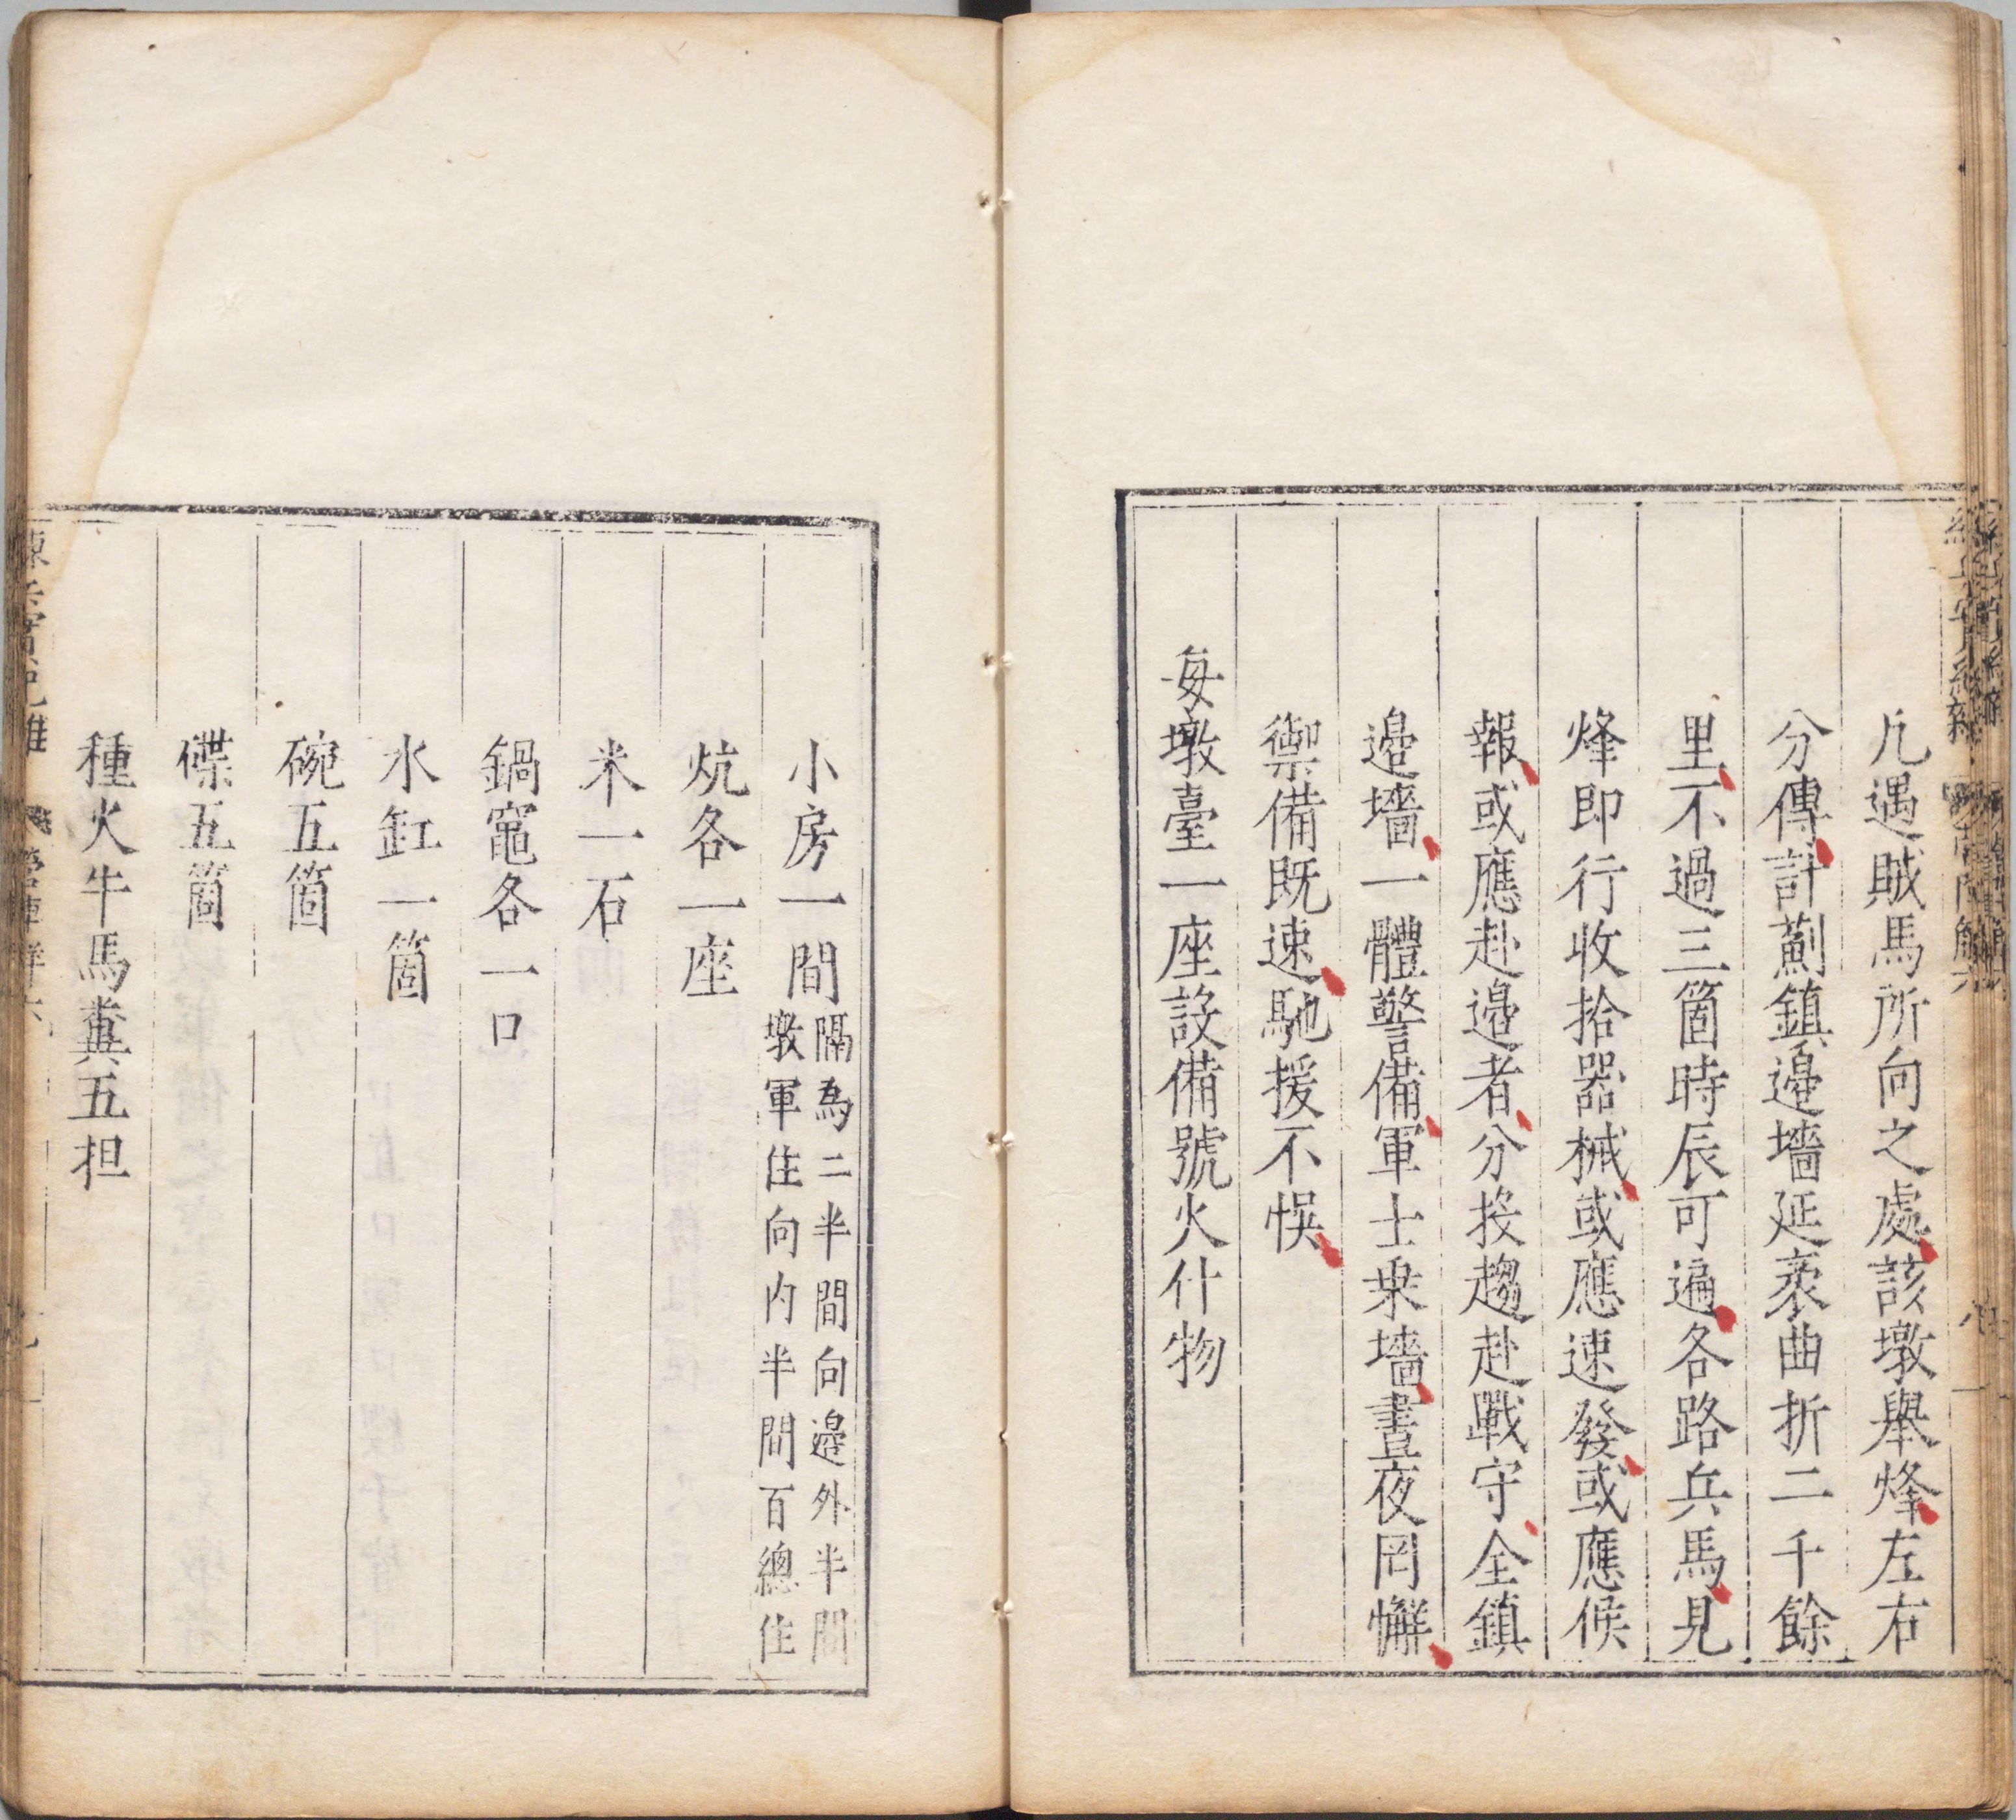 凢遇賊馬所向之處該墩舉烽左右
分傳計薊鎮邉墻延袤曲折二千餘
里不過三箇時辰可遍各路兵馬見
烽即行收拾噐械或應速發或應候
報或應赴邉者分投趨赴戰守全鎮
邉墻一體警備軍士乗墻晝夜罔懈
禦備既速馳援不悞
每墩臺一座設備號火什物
小房一間
隔為二半間向邉外半間
墩軍住向内半間百總住
炕各一座
米一石
鍋竈各一口
水缸一箇
碗五箇
碟五箇
種火牛馬糞五担